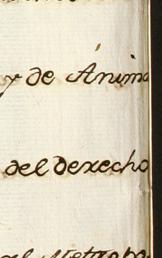 y de Ánima
del derecho